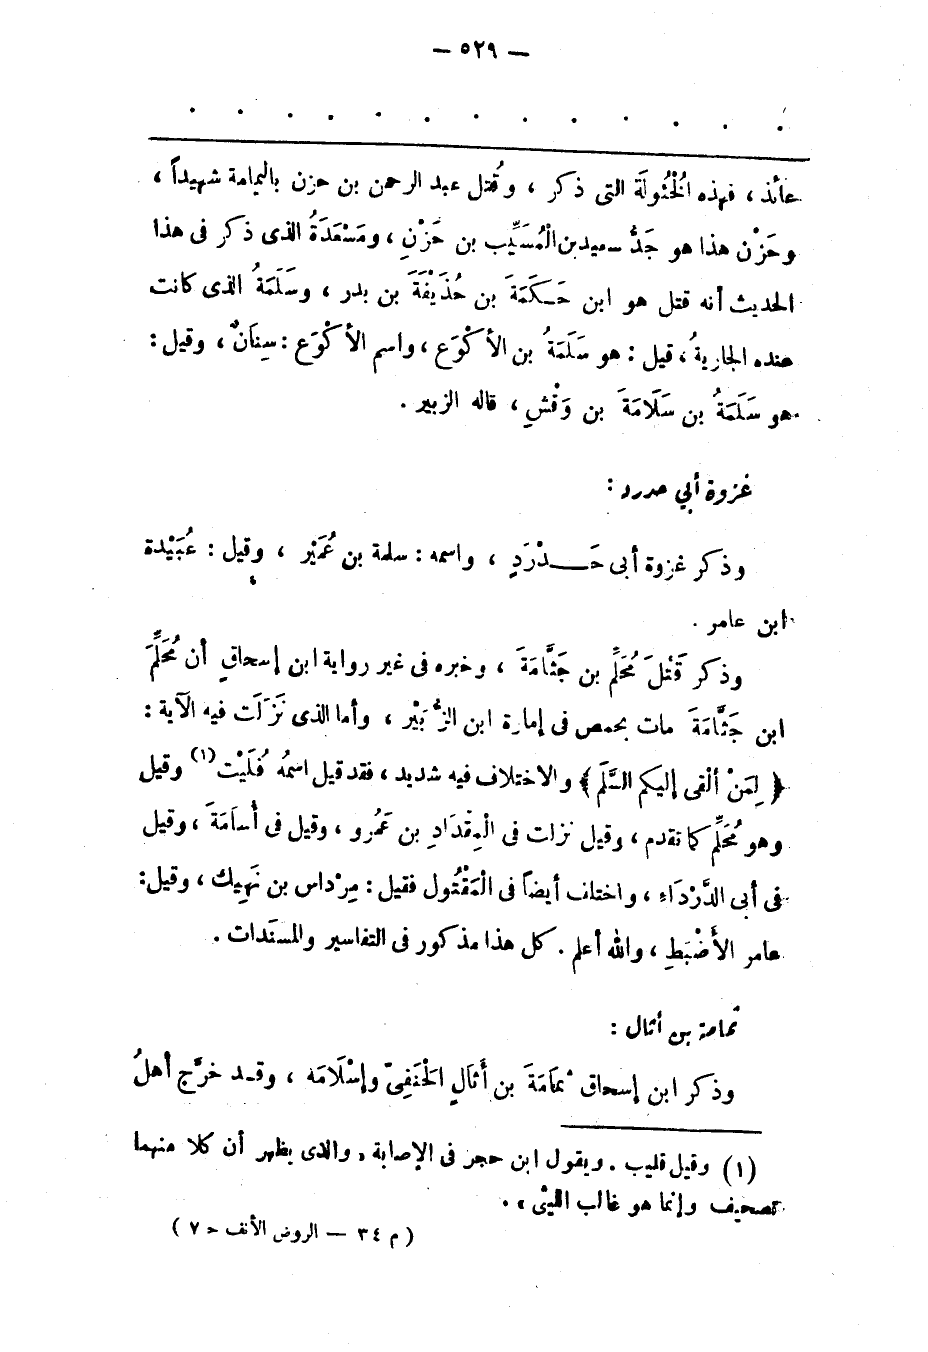 — ٥٢٩ —
. . . . . . . . . . . . .
عائذ ، فهذه الْخُئُولَة التى ذكر ، وقُتل عبد الرحمن بن حزن باليمامة شهيداً ،
وحَزْن هذا هو جَدُّ سعيد بن الْمُسَيِّب بن حَزْنٍ ، ومَسْعَدَةُ الذى ذكر فى هذا
الحديث أنه قتل هو ابن حَكَمَةَ بن حُذَيْفَةَ بن بدر ، وسَلَمَةُ الذى كانت
عنده الجاريةُ ، قيل : هو سَلَمَةُ بن الأكْوَع ، واسم الأكْوَع : سِنَانٌ ، وقيل :
هو سَلَمَةُ بن سَلَامَةَ بن وَقْشٍ ، قاله الزبير .
غزوة أبي حدرد :
وذكر غزوة أبى حَـــدْرَدٍ ، واسمه : سلمة بن عُمَيْر ، وقيل : عُبَيْدة
ابن عامر .
وذكر قَتْلَ مُحَلِّم بن جَثَّامَةَ ، وخبره فى غير رواية ابن إسحاق أن مُحَلِّمَ
ابن جَثَّامَةَ مات بحمص فى إمارة ابن الزُّبَيْر ، وأما الذى نَزَلَت فيه الآية :
﴿ لِمَنْ ألْقى إليكم السَّلَم ﴾ والاختلاف فيه شديد ، فقد قيل اسمُه فُلَيْت (١) وقيل
وهو مُحَلِّم كما تقدم ، وقيل نزلت فى الْمِقْدَادِ بن عَمْرو ، وقيل فى أُسَامَةَ ، وقيل
فى أبى الدَّرْدَاءِ ، واختلف أيضاً فى الْمَقْتُول فقيل : مِرْداس بن نَهِيك ، وقيل :
عامر الأَضْبَطِ ، والله أعلم . كل هذا مذكور فى التفاسير والمسنَدات .
ثمامة بن أثال :
وذكر ابن إسحاق ثُمَامَةَ بن أُثَالٍ الْحَنَفِىّ وإسْلَامَه ، وقـد خرَّج أهلُ
(١) وقيل قليب . ويقول ابن حجر فى الإصابة « والذى يظهر أن كلا منهما
تصحيف وإنما هو غالب الليثى » .
( م ٣٤ — الروض الأنف ح ٧ )